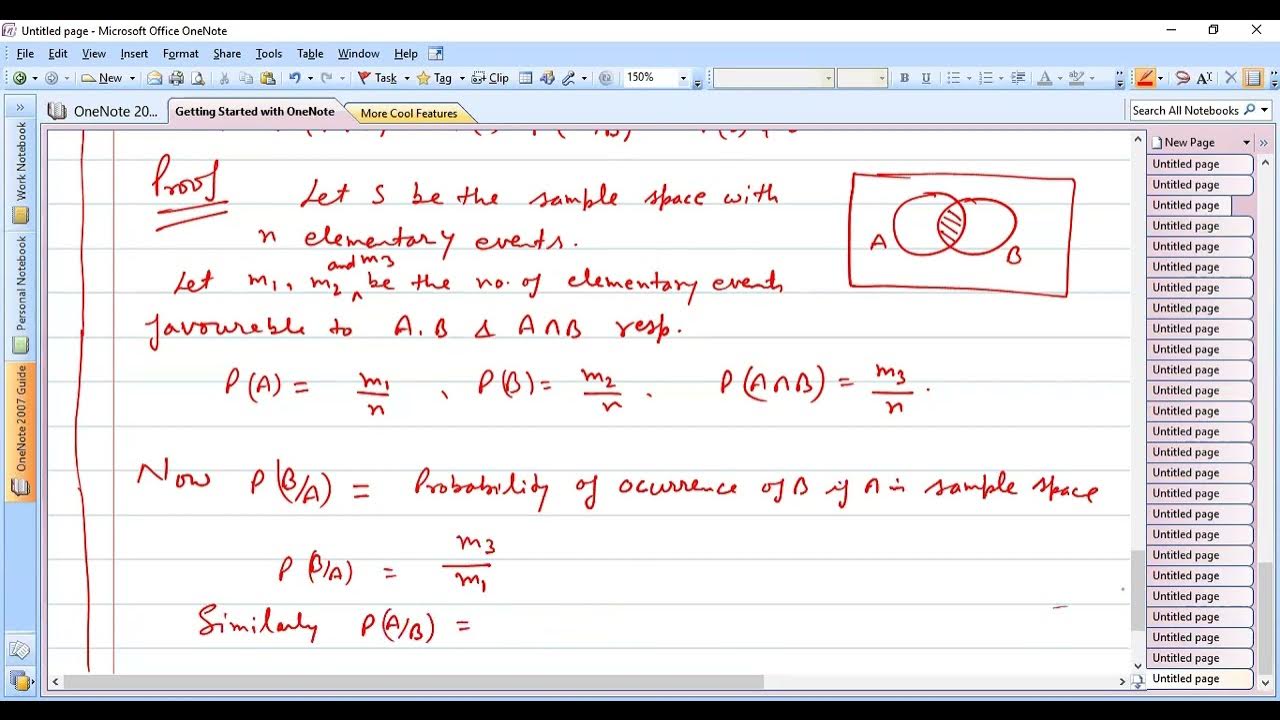 Untitled page - Microsoft Office OneNote
File Edit View Insert Format Share Tools Table Window Help
New Task Tag Clip 150% B I U
OneNote 20... Getting Started with OneNote More Cool Features Search All Notebooks
New Page
Work Notebook
Personal Notebook
OneNote 2007 Guide
Proof
Let S be the sample space with
n elementary events.
and m3
Let m1, m2 ^ be the no. of elementary events
favourable to A, B & A∩B resp.
P(A) = m1/n , P(B) = m2/n . P(A∩B) = m3/n .
Now P(B/A) = Probability of ocurrence of B if A is sample space
P(B/A) = m3/m1
Similarly P(A/B) =
A
B
Untitled page
Untitled page
Untitled page
Untitled page
Untitled page
Untitled page
Untitled page
Untitled page
Untitled page
Untitled page
Untitled page
Untitled page
Untitled page
Untitled page
Untitled page
Untitled page
Untitled page
Untitled page
Untitled page
Untitled page
Untitled page
Untitled page
Untitled page
Untitled page
Untitled page
Untitled page